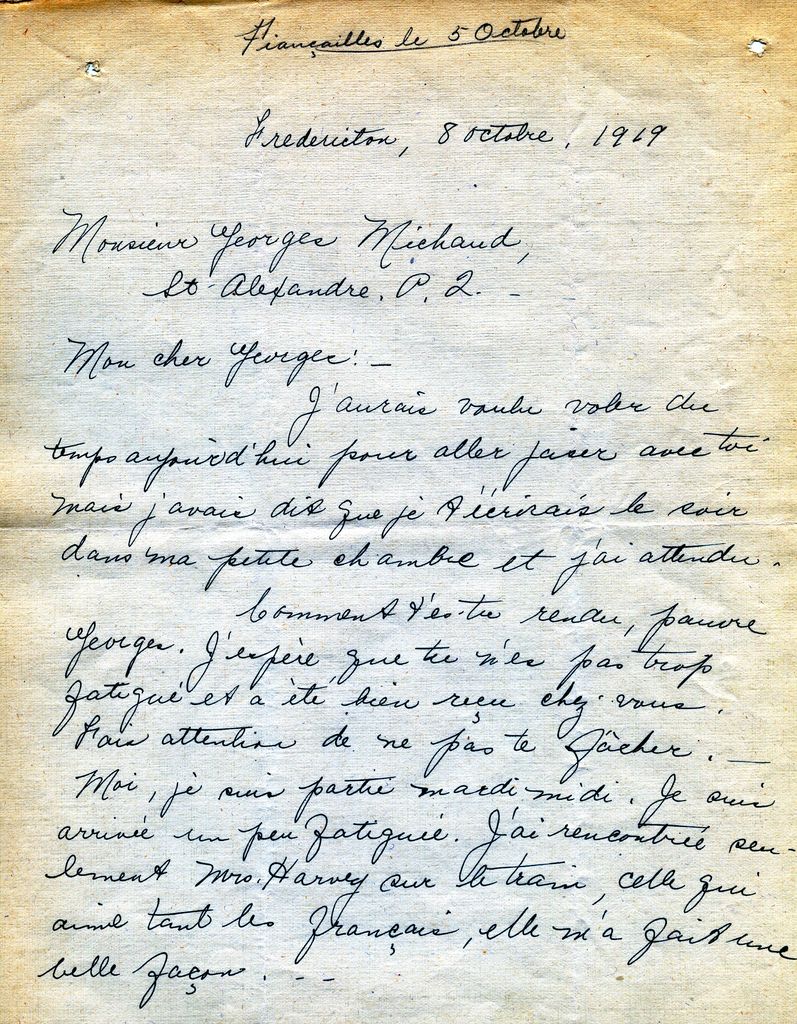 Fiançailles le 5 Octobre
Fredericton, 8 octobre, 1919
Monsieur Georges Michaud,
St-Alexandre. P. Q. -
Mon cher Georges: -
J'aurais voulu voler du
temps aujourd'hui pour aller jaser avec toi
mais j'avais dit que je t'écrirais le soir
dans ma petite chambre et j'ai attendu.
Comment t'es-tu rendu, pauvre
Georges. J'espère que tu n'es pas trop
fatigué et a été bien reçu chez-vous.
Fais attention de ne pas te fâcher. -
Moi, je suis partie mardi midi. Je suis
arrivée un peu fatiguée. J'ai rencontrée seu-
lement Mrs. Harvey sur le train, celle qui
aime tant les français, elle m'a fait une
belle façon. - -